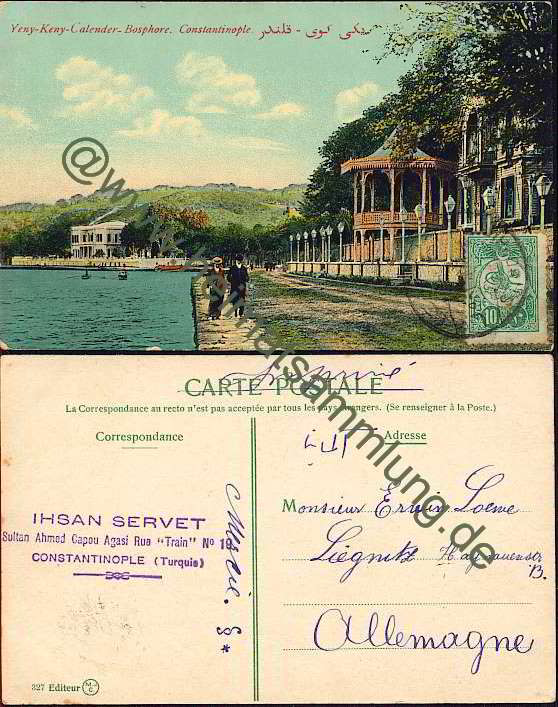 Yeny-Keny-Calender- Bosphore. Constantinople. يكى كوى - قلندر
10
Imprimé
CARTE POSTALE
La Correspondance au recto n'est pas acceptée par tous les pays étrangers. (Se renseigner à la Poste.)
Correspondance
Adresse
IHSAN SERVET
Sultan Ahmed Capou Agasi Rue "Train" No 18
CONSTANTINOPLE (Turquie)
Monsieur Erwin Loewe
Liegnitz
Allemagne
327 Editeur